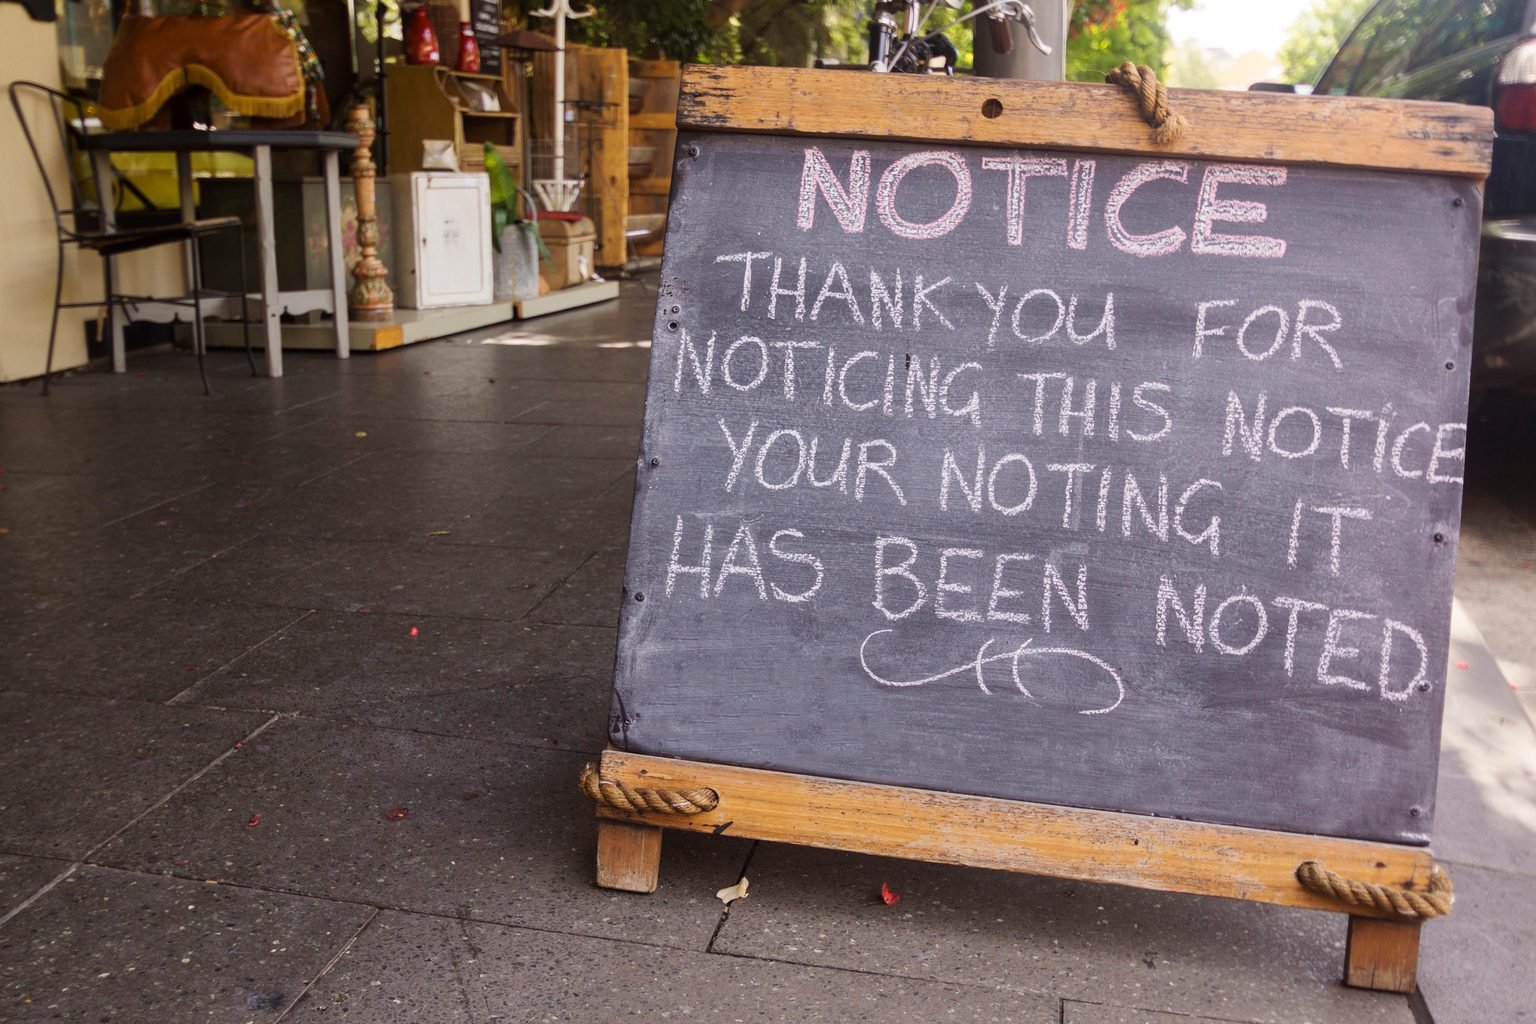 NOTICE
THANK YOU FOR
NOTICING THIS NOTICE
YOUR NOTING IT
HAS BEEN NOTED